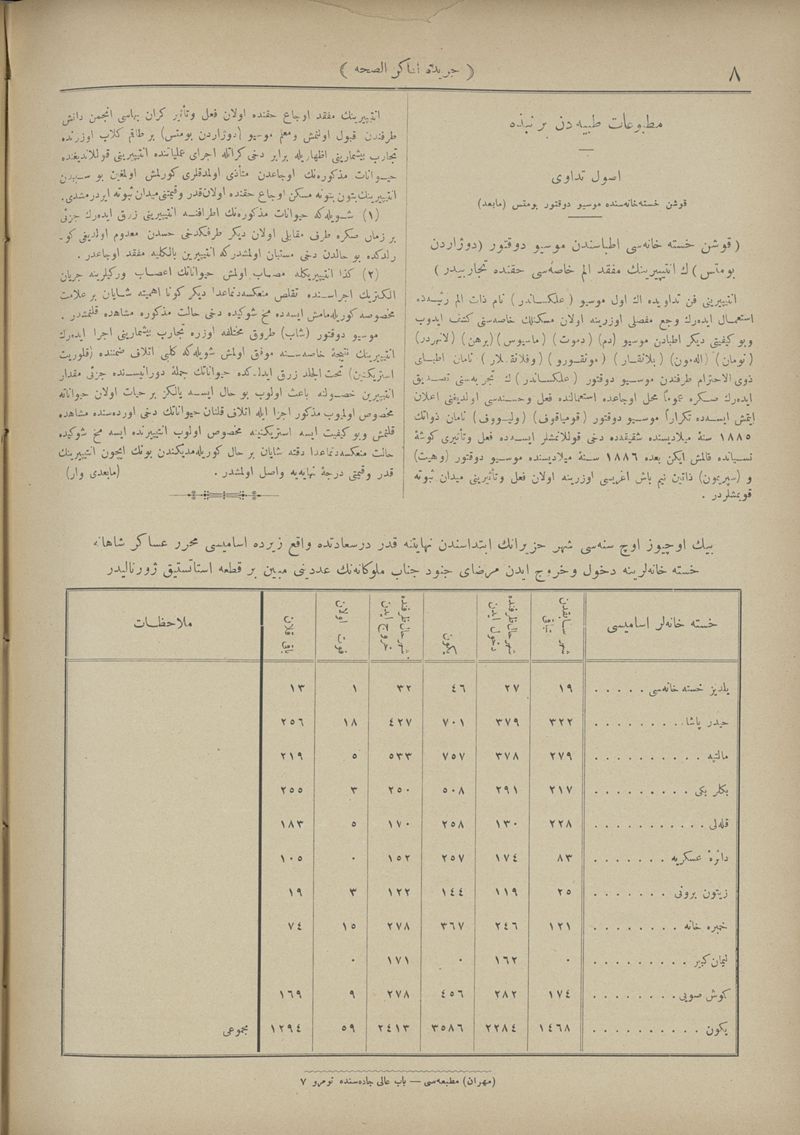 ٨
( جريدهٔ اماكن الصحه )
مطبوعات طبيه دن بر نبذه
اصول تداوى
قوشن خسته‌خانه‌سنده موسيو دوقتور بومتس (مابعد)
( قوشن خسته خانه‌سى اطباسندن موسيو دوقتور (دوژاردن
بومتس) ك انتيپيرينك مفقد الم خاصه‌سى حقنده تجاربيدر )
انتيپيرينى فن تداويده اڭ اول موسيو (علكساندر) نام ذات الم رئيه‌ده
استعمال ايده‌رك وجع مفصلى اوزرينه اولان مسكنلك خاصه‌سنى كشف ايدوب
وبو كيفيتى ديكر اطبادن موسيو (دم) (دموت) (ماسيوس) (برهن) (لانبردر)
(نومان) (اله‌مون) (بلانقار) (مونقورو) (وفلانقلار) نامان اطباى
ذوى الاحترام طرفندن موسيو دوقتور (علكساندر) ك تجربه‌سنى تصديق
ايده‌رك صكره عموماً محل اوجاعده استعمالنده فعل وحسنه‌سى اولديغنى اعلان
ايتمش ايسه‌ده تكراراً موسيو دوقتور (قومياقوف) (ولي‌ووف) نامان ذواتك
١٨٨٥ سنۀ ميلاديسنده شقيقه‌ده دخى قوللانمشلر ايسه‌ده فعل وتأثيرى كوشۀ
نسيانده قالمش ايكن بعده ١٨٨٦ سنۀ ميلاديسنده موسيو دوقتور (وهيت)
و (سپريمون) ذاتين نيم باش اغريسى اوزرينه اولان فعل وتأثيرينى ميدان ثبوته
قويمشلردر .
انتيپيرينك مفقد اوجاع حقنده اولان فعل وتأثير كران بهاسى انجمن دانش
طرفندن قبول اولنمش ومعلم موسيو (دوژاردن بومتس) بر طاقم كلاب اوزرنده
تجارب بيشمارينى اظهاريله برابر دخى كراتله اجراى عملياتنده انتيپيرينى قوللانديغنده
حيوانات مذكوره‌نك اوجاعدن متأذى اولمدقلرى كورلمش اولمغين بو سببدن
انتيپيرينك بتون بتونه مسكن اوجاع حقنده اولان‌قدر وقيمتنى ميدان ثبوته ايردرمشدى.
(١) شويله‌كه حيوانات مذكوره‌نك اطرافنه انتيپيرينى زرق ايده‌رك جزئى
بر زمان صكره طرف مقابلى اولان ديكر طرفكدخى حسدن معدوم اولديغى كو-
رلدكده بو حالدن دخى مستبان اولمشدركه انتيپيرين بالكليه مفقد اوجاعدر .
(٢) كذا انتيپيريكله مصاب اولمش حيواناتك اعصاب وركيلرينه جريان
الكتريك اجراسنده تقلص منعكسه‌دنماعدا ديكر كونا اهميته شايان بر علامت
مخصوصه كوريله‌مامش ايسه‌ده مخ شوكيده دخى حالت مذكوره مشاهده قلنمشدر .
موسيو دوقتور (شاب) طروق مختلفه اوزره تجارب بيشمارينى اجرا ايده‌رك
انتيپيرينك نتيجۀ خاصه‌سنه موفق اولمش شويله‌كه كلبى اتلاف ضمننده (قلوريت
استريكنين) تحت‌الجلد زرق ايدلدكده حيواناتك جملۀ دورانيسنده جزئى مقدار
انتيپيرين خصولنه باعث اولوب بو حال ايسه يالكز بر حيات اولان حيواناته
مخصوص اولميوب مذكور اجرا ايله اتلاف قلنان حيواناتك دخى اورده‌سنده مشاهده
قلنمش وبو كيفيت ايسه استريكنينه مخصوص اولوب انتيپيرنده ايسه مخ شوكيده
حالت منعكسه‌دنماعدا دقته شايان بر حال كوريله‌مديكندن بونك ايچون انتيپيرينك
قدر وقيمتى درجۀ نهايه‌يه واصل اولمشدر . (مابعدى وار)
بيك اوچيوز اوچ سنه‌سى شهر حزيرانك ابتداسندن نهايتنه قدر درسعادتده واقع زيرده اساميسى محرر عساكر شاهانه
خسته خانه‌لرينه دخول وخروج ايدن مرضاى جنود جناب ملوكانه‌نك عددينى مبين بر قطعه استاتستيق ژورناليدر
خسته خانه‌لر اساميسى | شهر سابقدن باقى | شهر حال ظرفنده دخول ايدن | يكون | شهر حال ظرفنده خروج ايدن | فوت اولان | باقى قلان | ملاحظات
يلديز خسته خانه‌سى ..... ١٩ ٢٧ ٤٦ ٣٢ ١ ١٣
حيدر پاشا ........ ٣٢٢ ٣٧٩ ٧٠١ ٤٢٧ ١٨ ٢٥٦
مالتپه .......... ٢٧٩ ٣٧٨ ٧٥٧ ٥٣٣ ٥ ٢١٩
بكلر بكى ......... ٢١٧ ٢٩١ ٥٠٨ ٢٥٠ ٣ ٢٥٥
قله‌لى ........... ٢٢٨ ١٣٠ ٢٥٨ ١٧٠ ٥ ١٨٣
دائرۀ عسكريه ....... ٨٣ ١٧٤ ٢٥٧ ١٥٢ ٠ ١٠٥
زيتون برونى ....... ٢٥ ١١٩ ١٤٤ ١٢٢ ٣ ١٩
خمبره خانه ........ ١٢١ ٢٤٦ ٣٦٧ ٢٧٨ ١٥ ٧٤
ليمان كبير ......... ٠ ١٦٢ ٠ ١٧١ ٠
كوش صويى ........ ١٧٤ ٢٨٢ ٤٥٦ ٢٧٨ ٩ ١٦٩
يكون .......... ١٤٦٨ ٢٢٨٤ ٣٥٨٦ ٢٤١٣ ٥٩ ١٢٩٤ مجموعى
(مهران) مطبعه‌سى — باب عالى جاده‌سنده نومرو ٧